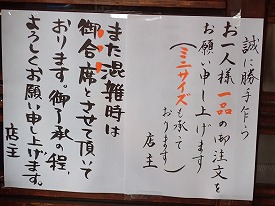 誠に勝手乍ら
お一人様一品の御注文を
お願い申し上げます
(ミニサイズも承て
おります)
店主
また混雑時は
御合席とさせて頂いて
おります。御了承の程、
よろしくお願い申し上げます。
店主